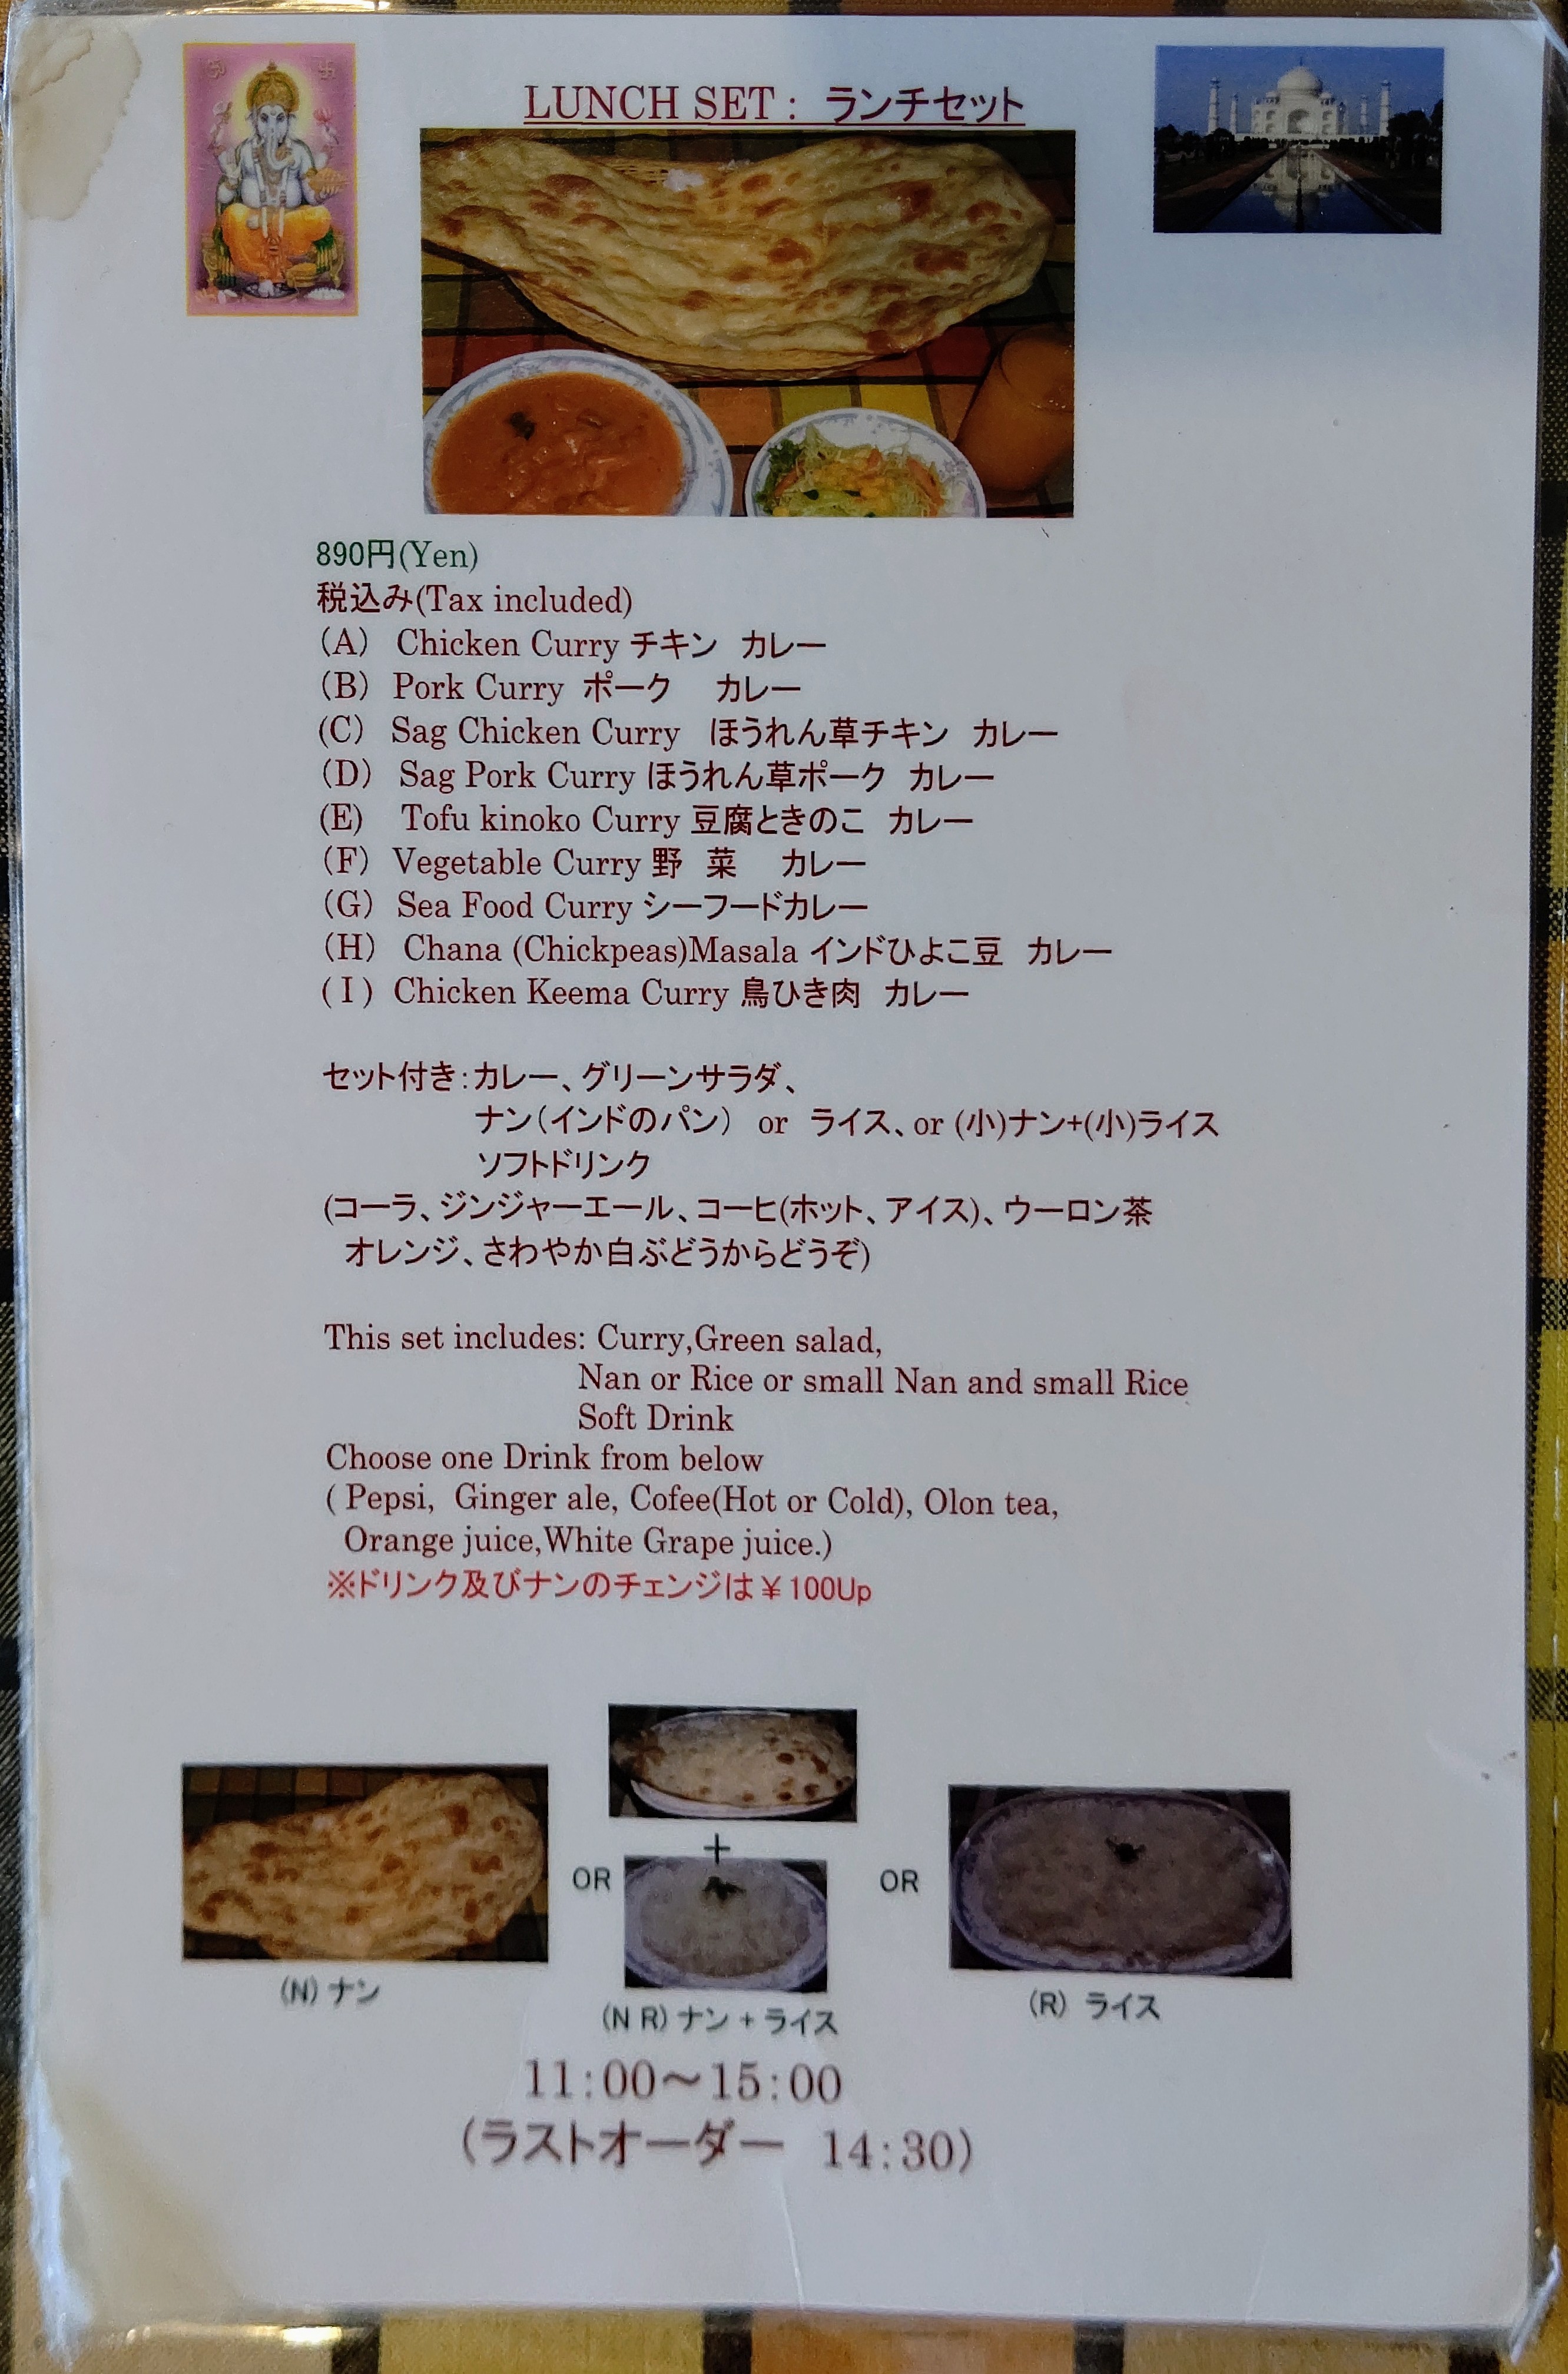 LUNCH SET : ランチセット
890円(Yen)
税込み(Tax included)
(A) Chicken Curry チキン カレー
(B) Pork Curry ポーク カレー
(C) Sag Chicken Curry ほうれん草チキン カレー
(D) Sag Pork Curry ほうれん草ポーク カレー
(E) Tofu kinoko Curry 豆腐ときのこ カレー
(F) Vegetable Curry 野 菜 カレー
(G) Sea Food Curry シーフードカレー
(H) Chana (Chickpeas)Masala インドひよこ豆 カレー
( I ) Chicken Keema Curry 鳥ひき肉 カレー
セット付き:カレー、グリーンサラダ、
ナン(インドのパン) or ライス、or (小)ナン+(小)ライス
ソフトドリンク
(コーラ、ジンジャーエール、コーヒ(ホット、アイス)、ウーロン茶
オレンジ、さわやか白ぶどうからどうぞ)
This set includes: Curry,Green salad,
Nan or Rice or small Nan and small Rice
Soft Drink
Choose one Drink from below
( Pepsi, Ginger ale, Cofee(Hot or Cold), Olon tea,
Orange juice,White Grape juice.)
※ドリンク及びナンのチェンジは￥100Up
+
OR OR
(N) ナン
(N R) ナン + ライス
(R) ライス
11:00～15:00
(ラストオーダー 14:30)